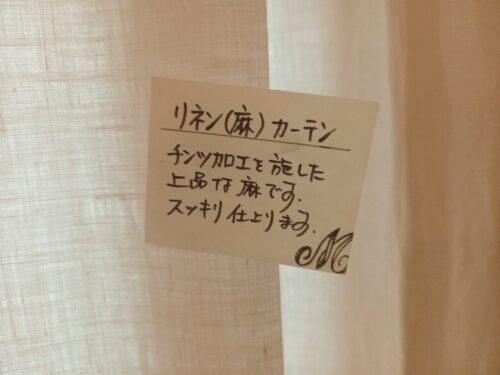 リネン(麻)カーテン
チンツ加工を施した
上品な麻です.
スッキリ仕上ります.
M